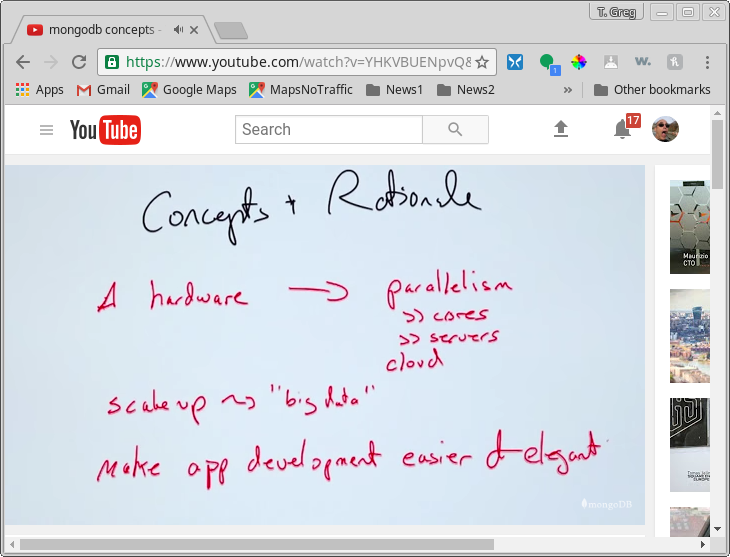 T. Greg
mongodb concepts -
https://www.youtube.com/watch?v=YHKVBUENpvQ&
1
Apps Gmail Google Maps MapsNoTraffic News1 News2 » Other bookmarks
YouTube Search 17
Concepts + Rationale
Δ hardware → parallelism
>> cores
>> servers
cloud
scale up ~> "big data"
make app development easier & elegant
mongoDB
Maurizio
CTO